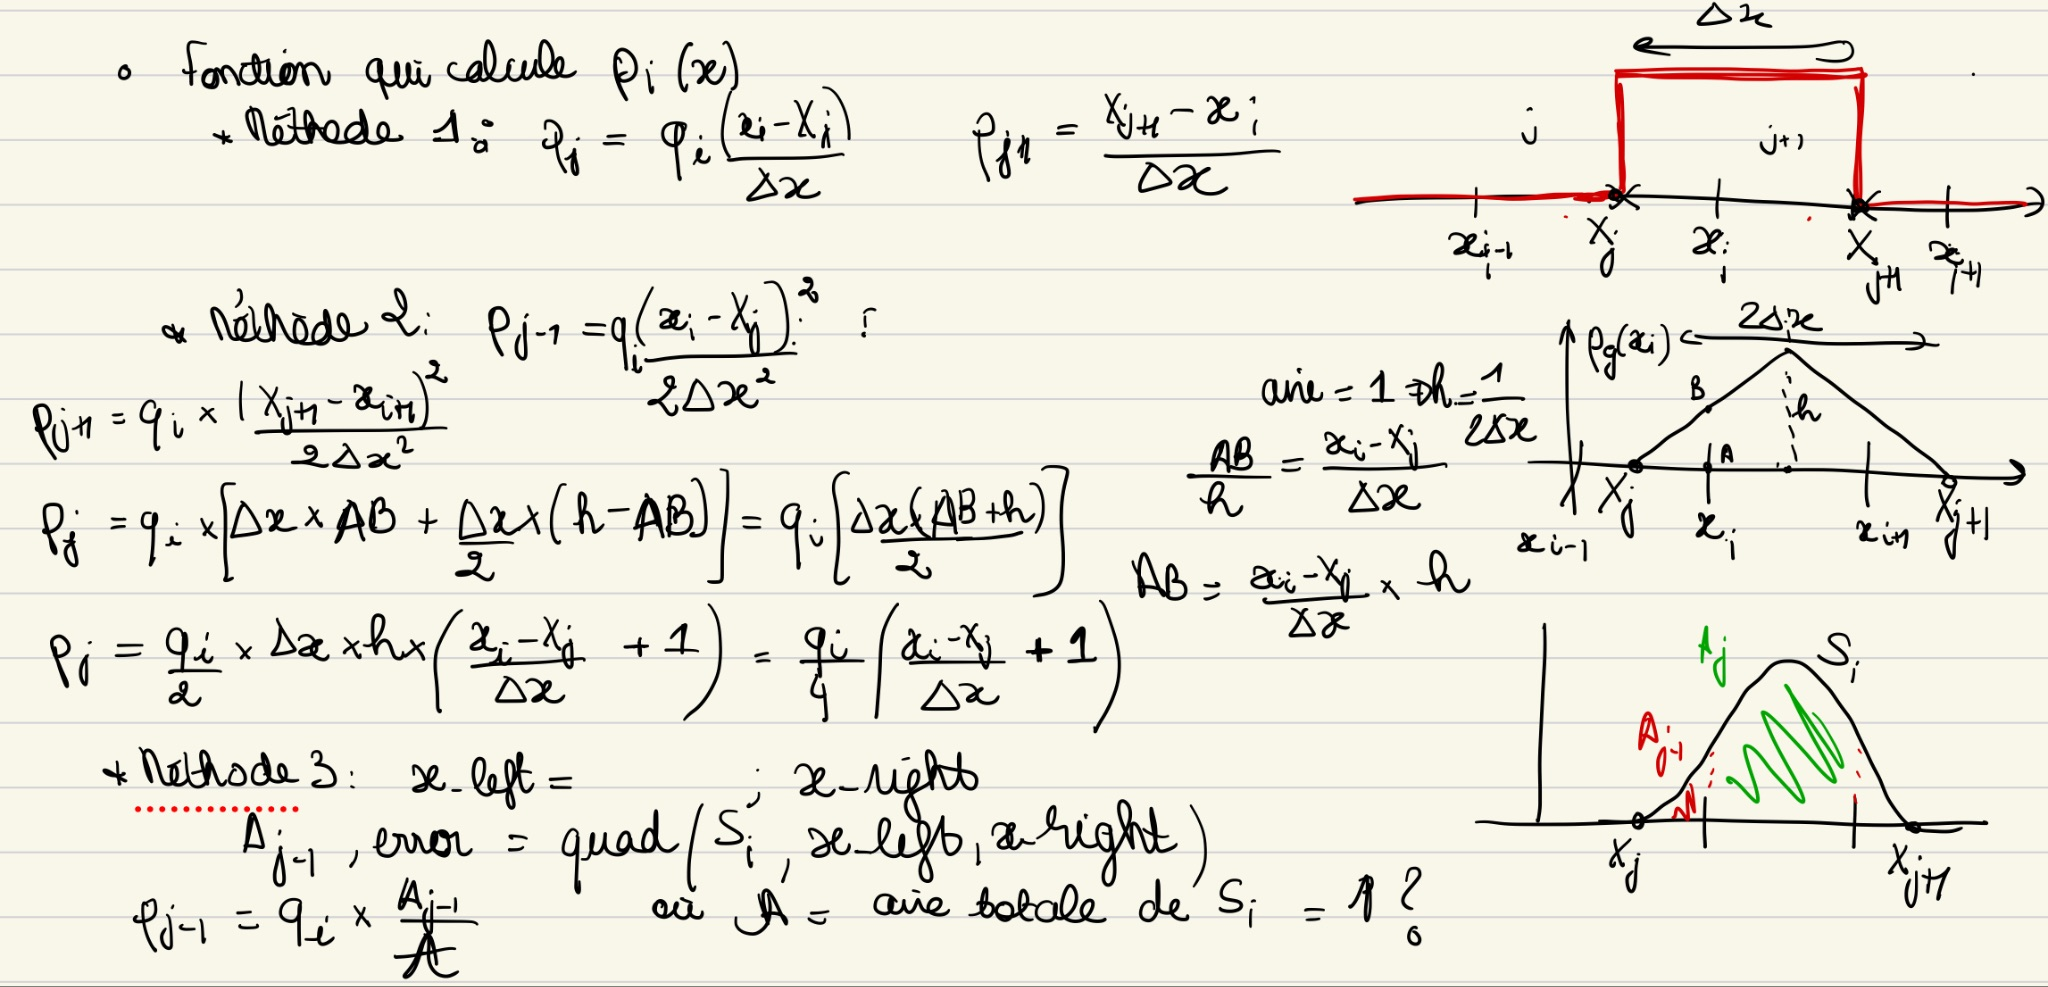 ∘ Fonction qui calcule ρ_i (x)
* Méthode 1 : ρ_j = q_i (x_i - X_j) / Δx    ρ_{j+1} = (X_{j+1} - x_i) / Δx
Δx
j    j+1
x_{i-1}    X_j    x_i    X_{j+1}    x_{i+1}
* Méthode 2 : ρ_{j-1} = q_i (x_i - X_j)² / 2Δx² ?
ρ_{j+1} = q_i × (X_{j+1} - x_{i+1})² / 2Δx²
ρ_j = q_i × [Δx × AB + Δx/2 × (h - AB)] = q_i [Δx(AB + h) / 2]
ρ_j = q_i/2 × Δx × h × ((x_i - X_j)/Δx + 1) = q_i/4 ((x_i - X_j)/Δx + 1)
aire = 1 ⇒ h = 1/2Δx
AB/h = (x_i - X_j)/Δx
AB = (x_i - X_j)/Δx × h
ρ_g(x_i)    2Δx
B    h
A
x_{i-1}    X_j    x_i    x_{i+1}    X_{j+1}
* Méthode 3 : x_left =    ; x_right
A_{j-1}, error = quad(S_i, x_left, x_right)
ρ_{j-1} = q_i × A_{j-1}/A    où A = aire totale de S_i = 1 ?
A_j    S_i
A_{j-1}
X_j    X_{j+1}